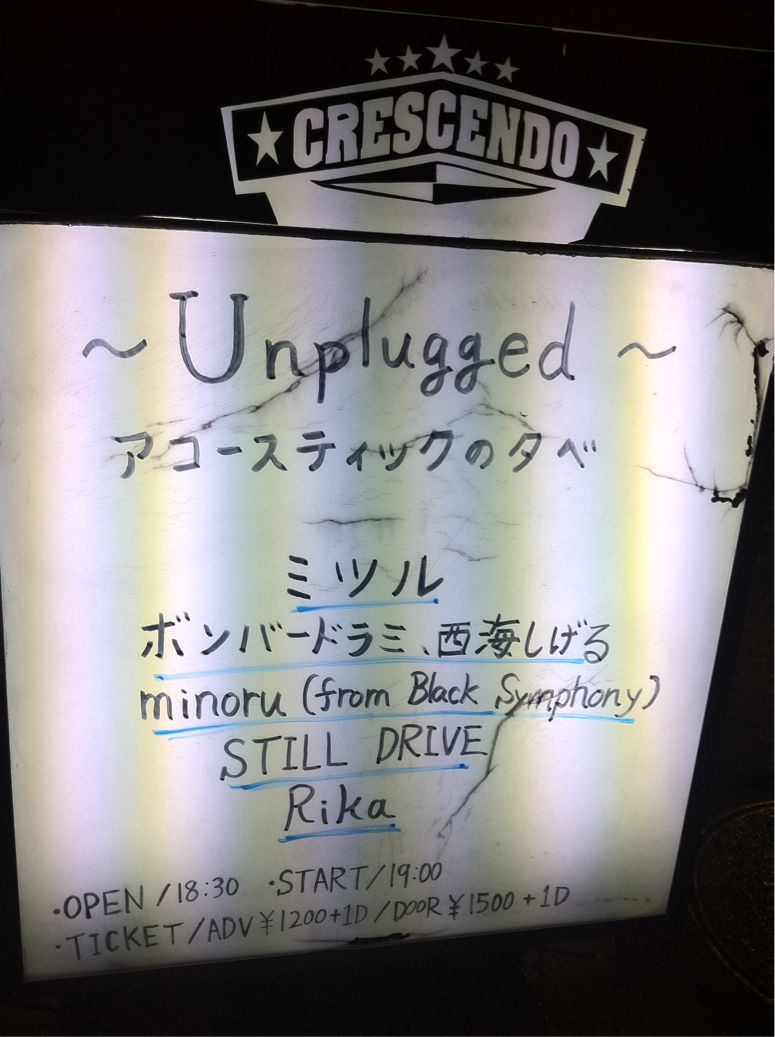 CRESCENDO
~Unplugged~
アコースティックの夕べ
ミツル
ボンバードラミ、西海しげる
minoru (from Black Symphony)
STILL DRIVE
Rika
・OPEN/18:30 ・START/19:00
・TICKET/ADV¥1200+1D/DOOR¥1500+1D